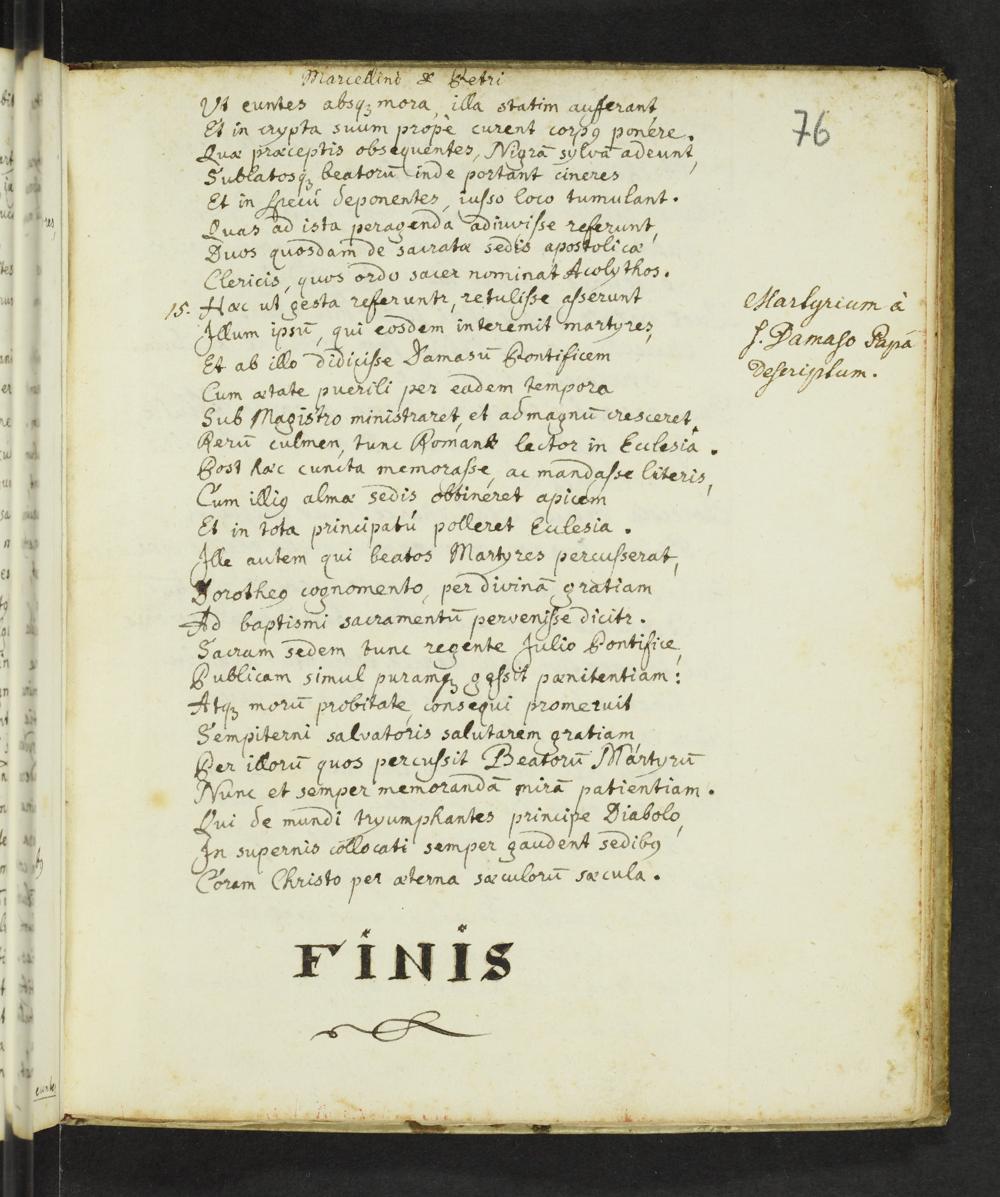 Marcellini & Petri
76
Ut euntes absq; mora, illa statim aufferant
Et in crypta suum propè curent corpꝰ ponere.
Quæ præceptis obsequentes, Nigrā sylvā adeunt,
Sublatosq; beatorū inde portant cineres
Et in specū deponentes, iusso loco tumulant.
Quas ad ista peragenda adiuvisse referunt,
Duos quosdam de sacratæ sedis apostolicæ
Clericis, quos ordo sacer nominat Acolythos.
15. Hæc ut gesta referuntr, retulisse asserunt
Illum ipsū, qui eosdem interemit martyres,
Et ab illo didicisse Damasū Pontificem
Cum ætate puerili per eadem tempora
Sub Magistro ministraret, et ad magnū cresceret,
Rerū culmen, tunc Romana lector in Ecclesia.
Post hæc cuncta memorasse, ac mandasse literis,
Cùm illiꝰ almæ sedis obtineret apicem
Et in tota principatú polleret Ecclesia.
Ille autem qui beatos Martyres percusserat,
Dorotheꝰ cognomento, per divinā gratiam
Ad baptismi sacramentū pervenisse dicitr.
Sacram sedem tunc regente Julio Pontifice,
Publicam simul puramq; gessit pænitentiam:
Atq; morū probitate, consequi promeruit
Sempiterni salvatoris salutarem gratiam
Per illorū quos percussit Beatorū Martyrū
Nunc et semper memorandā mirā patientiam.
Qui de mundi tryumphantes principe Diabolo,
In supernis collocati semper gaudent sedibꝰ
Córam Christo per æterna sæculorū sæcula.
FINIS
Martyrium à
S. Damaso Papa
Descriptum.